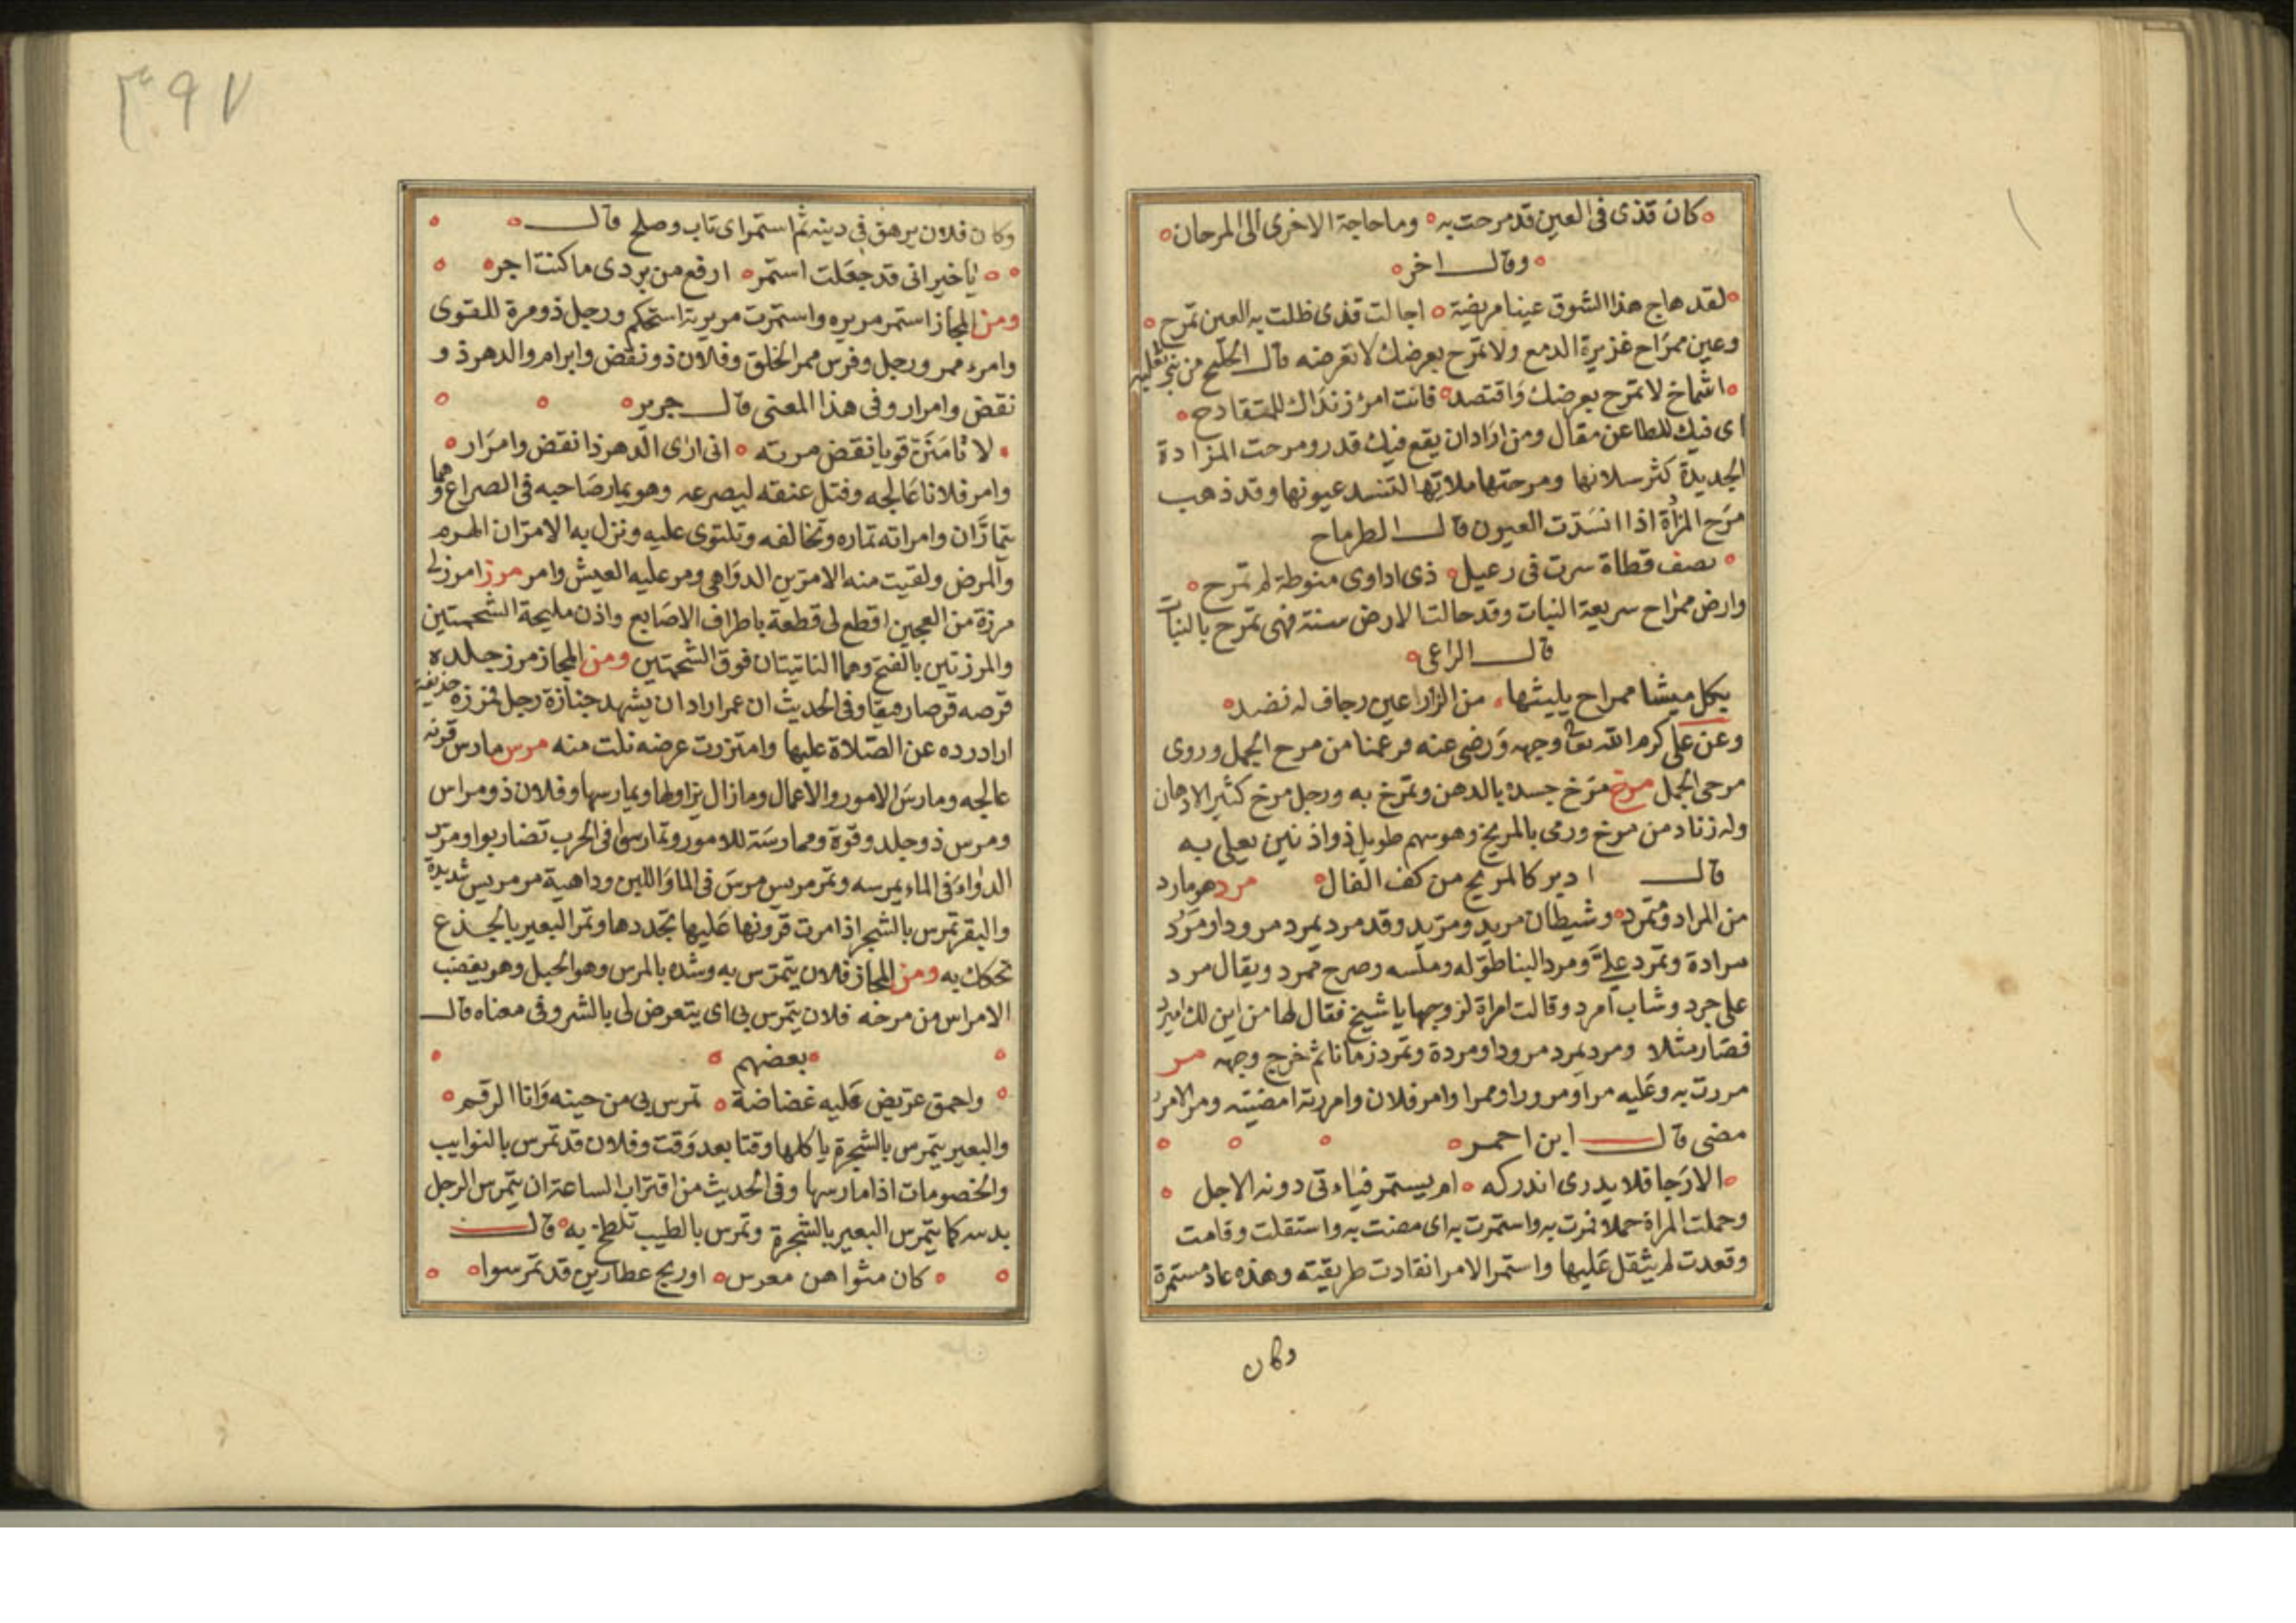 كان قذى فى العين قد مرحت به ۰ وما حاجة الاخرى الى المرحان
وقال اخر
لقد هاج هذا الشوق عينا مريضة ۰ اجالت قذى ظلت به العين تمرح
وعين ممراح غزيرة الدمع ولا تمرح بعرضك لا تعرضه قال من بنى
اشماخ لا تمرح بعرضك واقتصد ۰ فانت امرؤ زنداك للمتقادح
اى فيك للطاعن مقال ومن اراد ان يقع فيك قدر ومرحت المزادة
الجديدة كثر سيلانها ومرحتها ملاتها لتنسد عيونها وقد ذهب
مرح المزادة اذا انسدت العيون قال الطرماح
يصف قطاة سرت فى رعيل ۰ ذى اداوى منوطة لم تمرح
وارض ممراح سريعة النبات وقد حالت الارض سنة فهى تمرح بالنبات
قال الراعى
بكل ميشا ممراح ۰ من الزراعين رجاف له نضد
وعن على كرم الله تعا وجهه ورضى عنه من مرح الجمل وروى
مرحى الجمل مرخ مرخ جسده بالدهن وتمرخ به ورجل مرخ كثير الادهان
وله زناد من مرخ ورمى بالمريخ وهو سهم طويل ذو اذنين يعلى به
قال ادبر كالمريخ من كف الغال مرد هو مارد
من المراد ومتمرد وشيطان مريد ومريد وقد مرد يمرد مرودا ومرد
مرادة وتمرد على ومرد البنا طوله وملسه وصرح ممرد ويقال مرد
على جرد وشاب امرد وقالت امراة لزوجها يا شيخ فقال لها من اين لك اميرد
فصار مثلا ومرد يمرد مرودا ومردة وتمرد زمانا ثم خرج وجهه مر
مررت به وعليه مرا ومرورا وممرا وامر فلان وامررته امضيته ومر الامر
مضى قال ابن احمر
الا رجا فلا يدرى اندركه ۰ ام يستمر فياتى دونه الاجل
وحملت المراة حملا فمرت به واستمرت به اى مضت به واستقلت وقامت
وقعدت لم يثقل عليها واستمر الامر انقادت طريقته وهذه عاد مستمرة
وكان
٣٩٧
وكان فلان يرهق فى دينه ثم استمر اى تاب وصلح قال
يا خير انى قد جعلت استمر ۰ ارفع من بردى ما كنت اجر
ومن المجاز استمر مريره واستمرت مريرته استحكم ورجل ذو مرة للقوى
وامرء ممر ورجل وفرس ممر الخلق وفلان ذو نقض وابرام والدهر ذو
نقض وامرار وفى هذا المعنى قال جرير
لا تأمنن قويا نقض مرته ۰ انى ارى الدهر ذا نقض وامرار
وامر فلانا عالجه وفتل عنقه ليصرعه وهو يمار صاحبه فى الصراع وهما
يتمارّان وامراته تماره وتخالفه وتلتوى عليه ونزل به الامران الهرم
والمرض ولقيت منه الامرين الدواهى ومر عليه العيش وامر مرز امرز لى
مرزة من العجين اقطع لى قطعة باطراف الاصابع واذن مليحة الشحمتين
والمرزتين بالفتح وهما الناتيتان فوق الشحمتين ومن المجاز مرز جلده
قرصه قرصا رفيقا وفى الحديث ان عمر اراد ان يشهد جنازة رجل فمرزه حذيفة
اراد رده عن الصلاة عليها وامتزرت عرضه نلت منه مرس مارس قرنه
عالجه ومارس الامور والاعمال وما زال يزاولها ويمارسها وفلان ذو مراس
ومرس ذو جلد وقوة وممارسة للامور وتمارسوا فى الحرب تضاربوا ومرس
الدواء فى الماء يمرسه وتمر مريس مرس فى الما واللبن وداهية مرمريس شديدة
والبقر تمرس بالشجر اذا امرت قرونها عليها تجددها وتمر البعير بالجذع
تحكك به ومن المجاز فلان يتمرس به وشده بالمرس وهو الحبل وهو يقضب
الامراس من مرحه فلان يتمرس بى اى يتعرض لى بالشر وفى معناه قال
بعضهم
واحمق عريض عليه غضاضة ۰ تمرس بى من حينه وانا الرقم
والبعير يتمرس بالشجرة ياكلها وقتا بعد وقت وفلان قد تمرس بالنوايب
والخصومات اذا مارسها وفى الحديث من اقتراب الساعة ان يتمرس الرجل
بدينه كما يتمرس البعير بالشجرة وتمرس بالطيب تلطخ به قال
كان مثواهن معرس ۰ او ريح عطارين قد تمرسوا